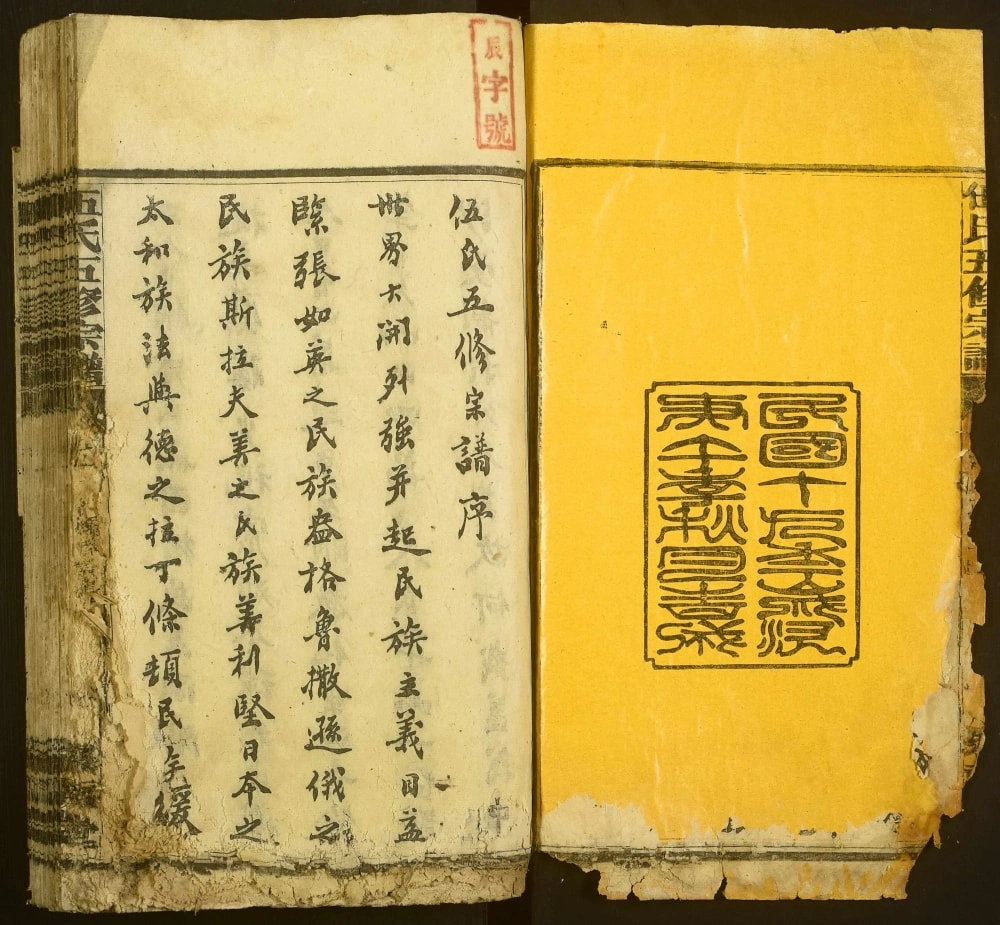 伍氏五修宗譜
民國十九年歲次
庚午季秋月吉成
辰字號
伍氏五修宗譜序
世界大開列強并起民族主義日益
緊張如英之民族盎格魯撒遜俄之
民族斯拉夫美之民族美利堅日本之
太和族法與德之拉丁條頓民
伍氏五修宗譜